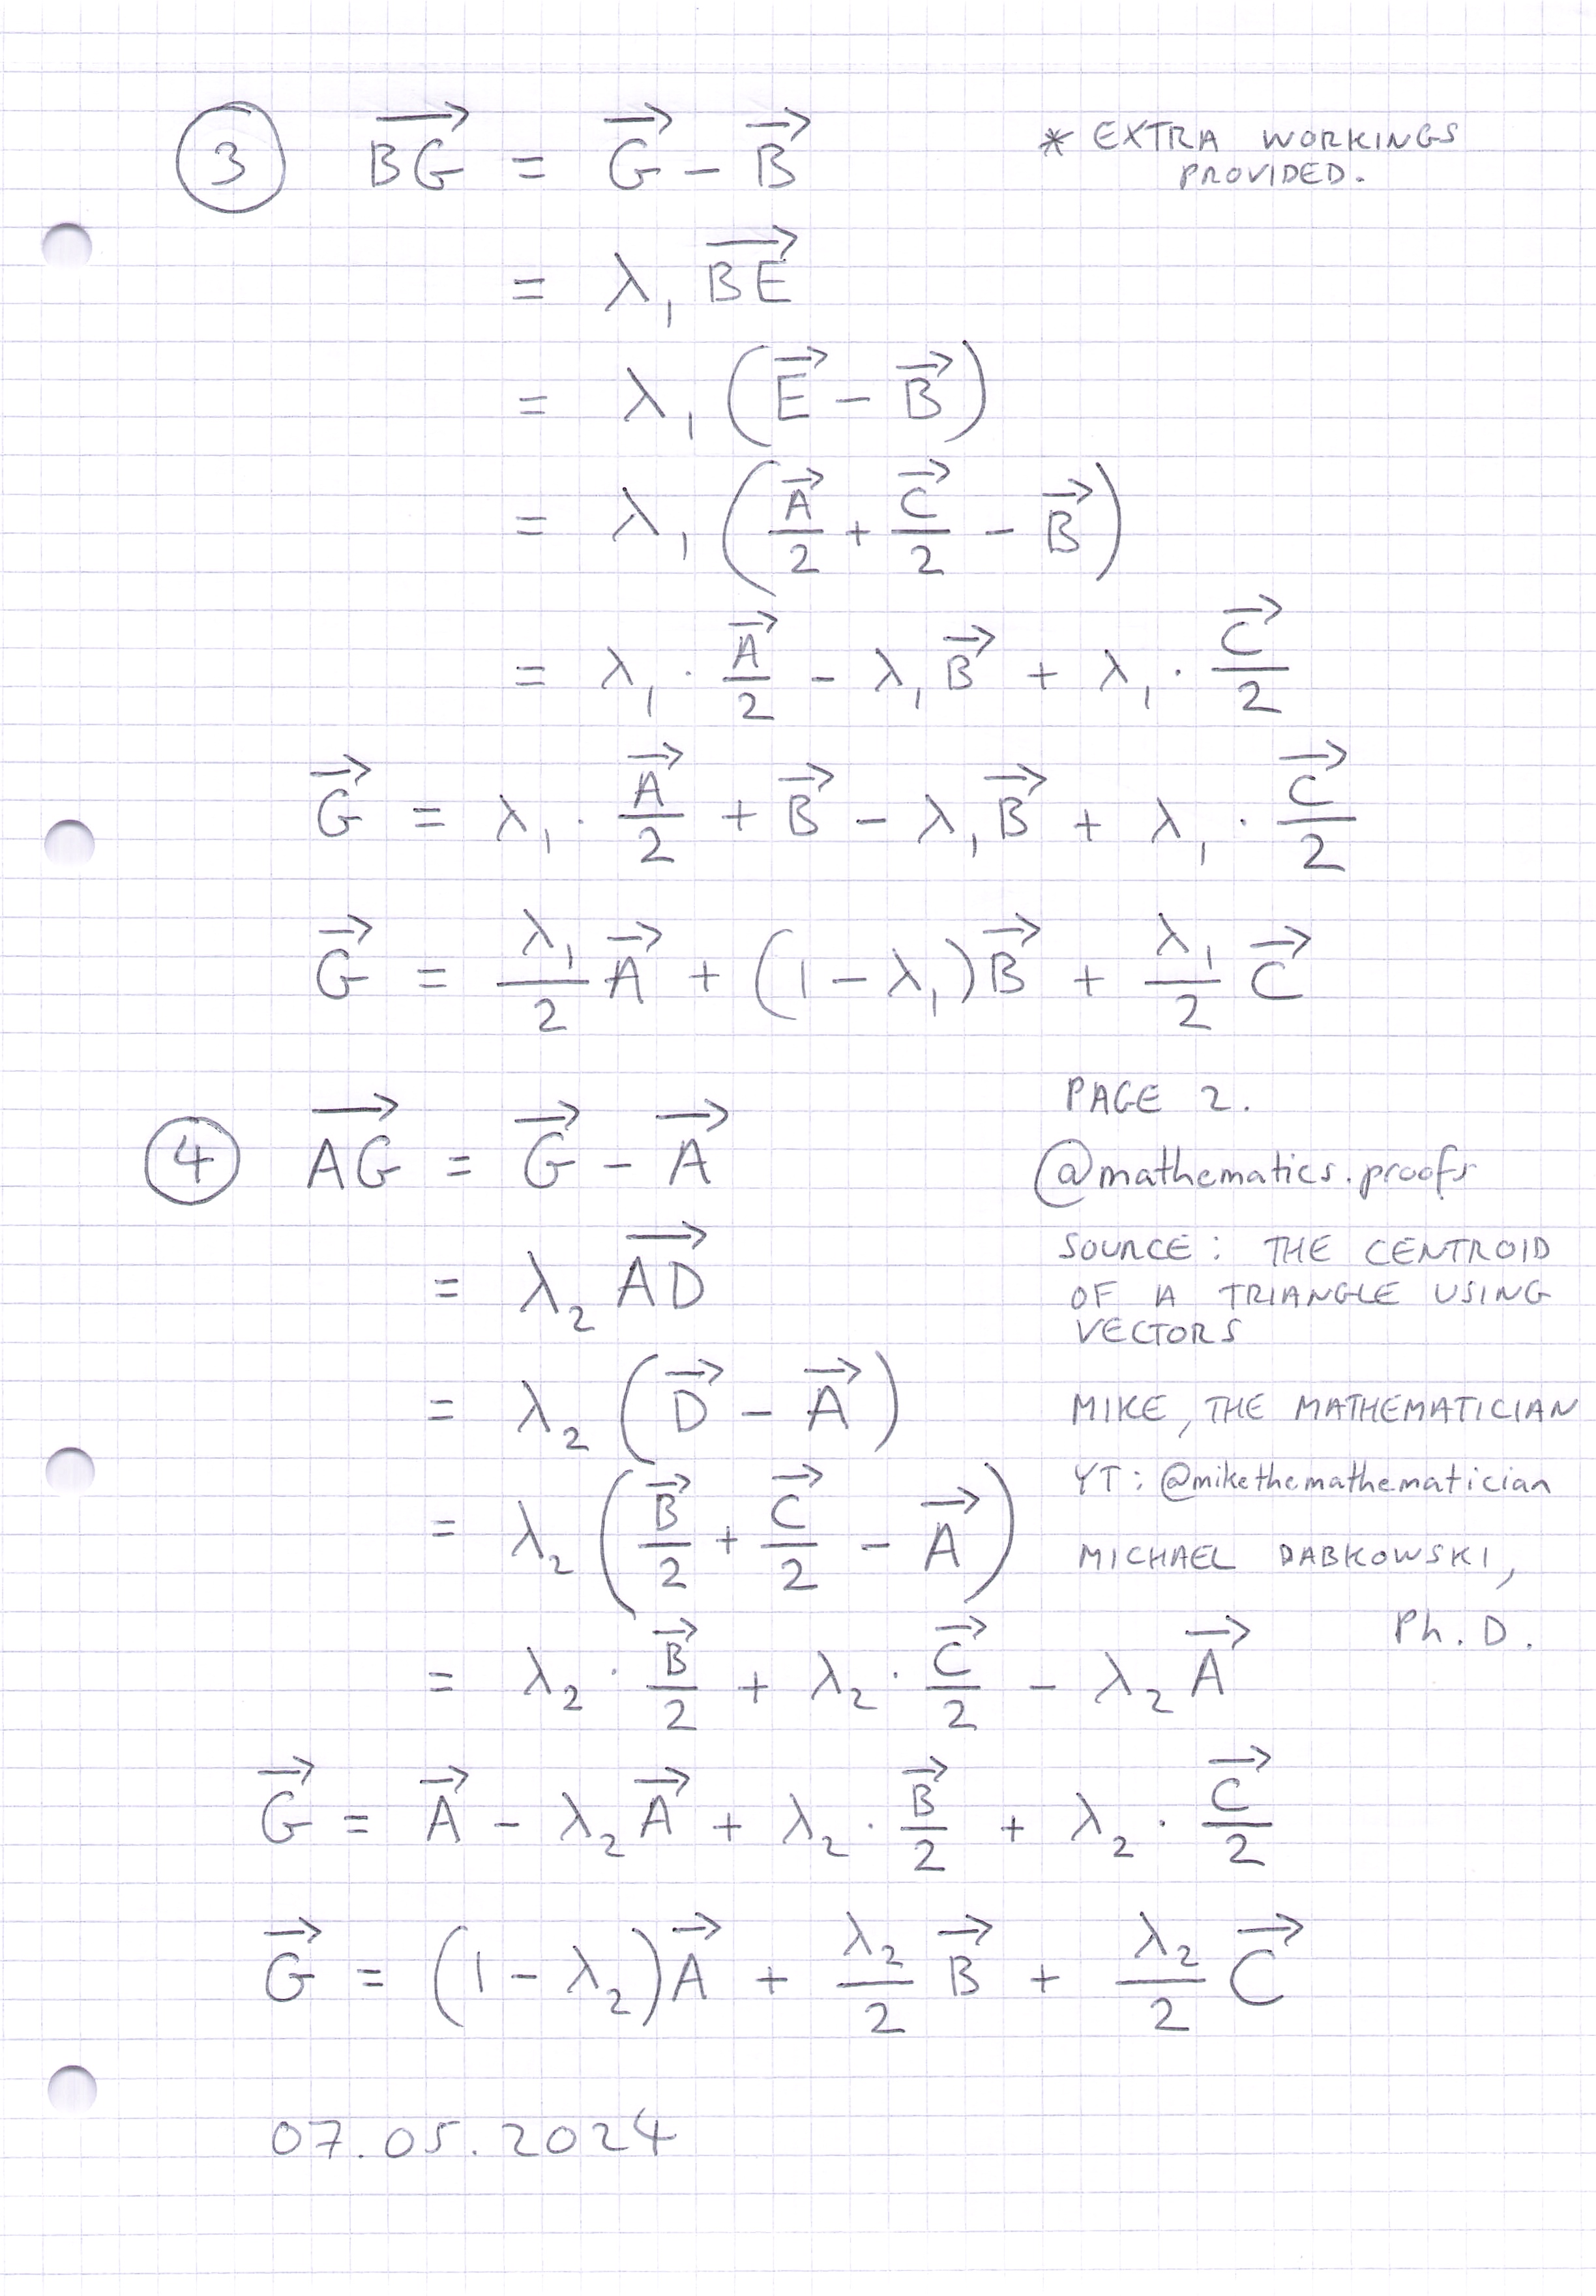 ③ $\overrightarrow{BG} = \overrightarrow{G} - \overrightarrow{B}$
* EXTRA WORKINGS
PROVIDED.
$= \lambda_1 \overrightarrow{BE}$
$= \lambda_1 \left( \overrightarrow{E} - \overrightarrow{B} \right)$
$= \lambda_1 \left( \frac{\overrightarrow{A}}{2} + \frac{\overrightarrow{C}}{2} - \overrightarrow{B} \right)$
$= \lambda_1 \cdot \frac{\overrightarrow{A}}{2} - \lambda_1 \overrightarrow{B} + \lambda_1 \cdot \frac{\overrightarrow{C}}{2}$
$\overrightarrow{G} = \lambda_1 \cdot \frac{\overrightarrow{A}}{2} + \overrightarrow{B} - \lambda_1 \overrightarrow{B} + \lambda_1 \cdot \frac{\overrightarrow{C}}{2}$
$\overrightarrow{G} = \frac{\lambda_1}{2} \overrightarrow{A} + (1 - \lambda_1) \overrightarrow{B} + \frac{\lambda_1}{2} \overrightarrow{C}$
④ $\overrightarrow{AG} = \overrightarrow{G} - \overrightarrow{A}$
$= \lambda_2 \overrightarrow{AD}$
$= \lambda_2 \left( \overrightarrow{D} - \overrightarrow{A} \right)$
$= \lambda_2 \left( \frac{\overrightarrow{B}}{2} + \frac{\overrightarrow{C}}{2} - \overrightarrow{A} \right)$
$= \lambda_2 \cdot \frac{\overrightarrow{B}}{2} + \lambda_2 \cdot \frac{\overrightarrow{C}}{2} - \lambda_2 \overrightarrow{A}$
$\overrightarrow{G} = \overrightarrow{A} - \lambda_2 \overrightarrow{A} + \lambda_2 \cdot \frac{\overrightarrow{B}}{2} + \lambda_2 \cdot \frac{\overrightarrow{C}}{2}$
$\overrightarrow{G} = (1 - \lambda_2) \overrightarrow{A} + \frac{\lambda_2}{2} \overrightarrow{B} + \frac{\lambda_2}{2} \overrightarrow{C}$
PAGE 2.
@mathematics.proofs
SOURCE: THE CENTROID
OF A TRIANGLE USING
VECTORS
MIKE, THE MATHEMATICIAN
YT: @mikethemathematician
MICHAEL DABKOWSKI,
Ph.D.
07.05.2024